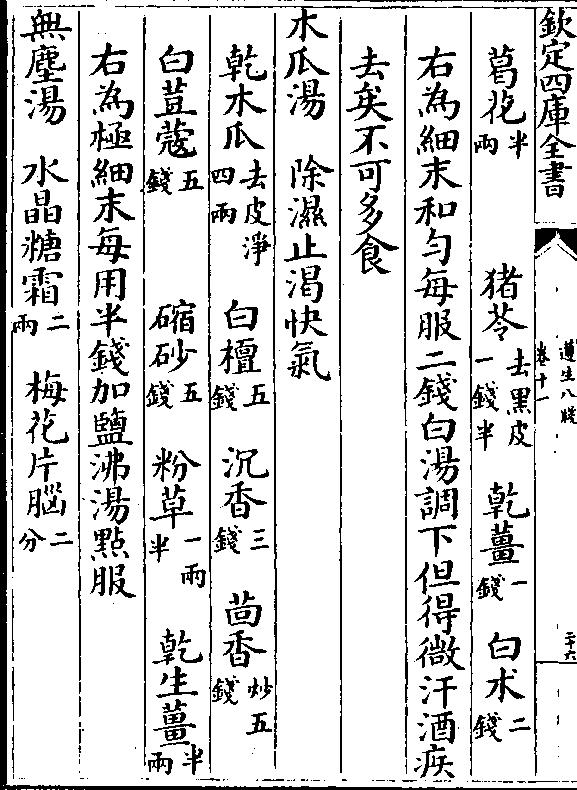 欽定四庫全書
遵生八牋
卷十一
二十六
葛花半兩 猪苓去黑皮一錢半 乾薑一錢 白术二錢
右為細末和勻每服二錢白湯調下但得微汗酒疾
去矣不可多食
木瓜湯 除濕止渴快氣
乾木瓜去皮淨四兩 白檀五錢 沉香三錢 茴香炒五錢
白荳蔻五錢 縮砂五錢 粉草一兩半 乾生薑半兩
右為極細末每用半錢加鹽沸湯點服
無塵湯 水晶糖霜二兩 梅花片腦二分